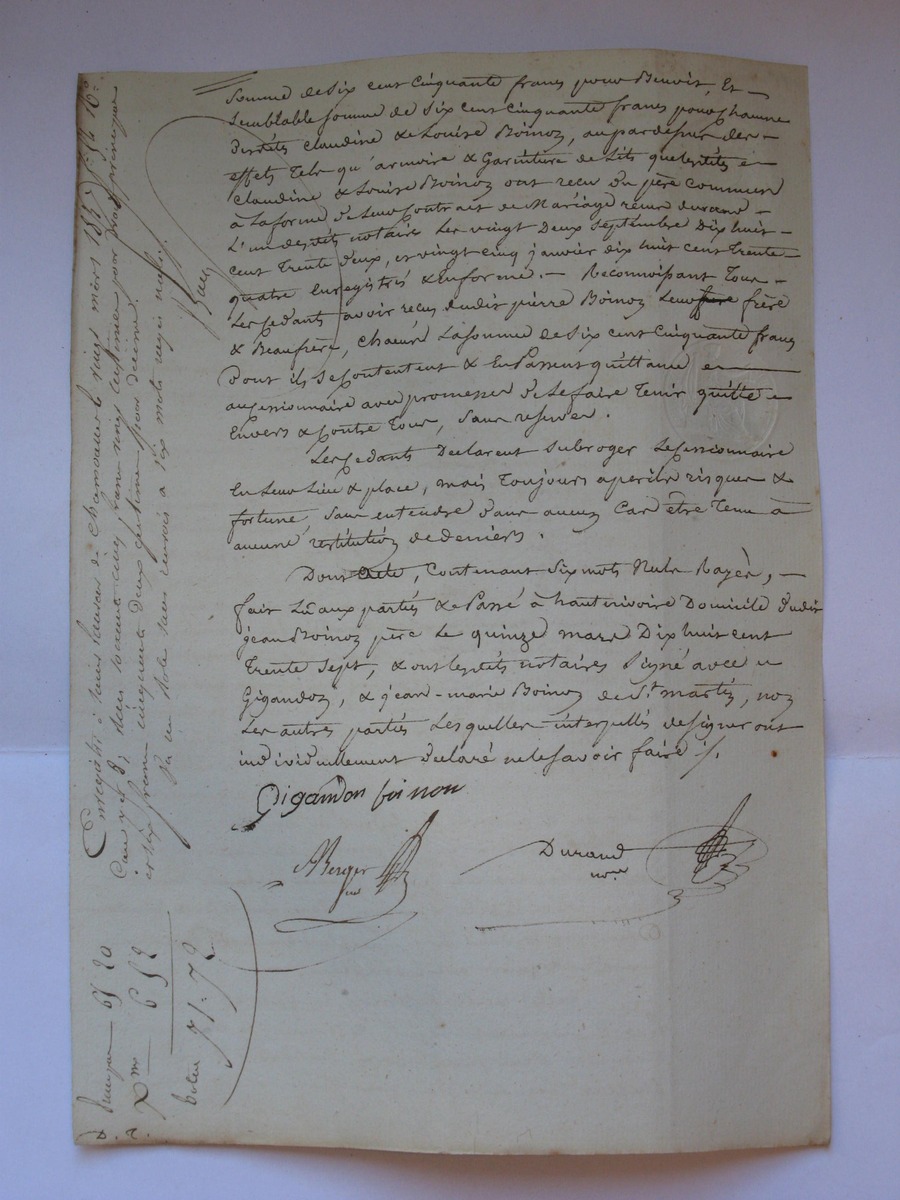 Somme de Six cent Cinquante francs pour Benoit, Et
Semblable Somme de Six cent Cinquante francs pour Chacune
Desdites Claudine & Louise Boinon, au par dessus des
effets Tels qu'armoire & Garniture de Lits que lesdites
Claudine & Louise Boinon ont recu Du père Commun
à la forme de leur Contrat de Mariage recus durand
L'un desdits notaires Les vingt Deux Septembre Dix huit
cent trente Deux, et vingt cinq janvier dix huit cent Trente
quatre Enregistrés & En forme. Reconnoissant Tous
Les Cedants avoir recu dudit pierre Boinon Leur frère
& Beaufrère, chacun La Somme de Six cent Cinquante francs
Dont ils Se Contentent & En Passent quittance
au Cessionnaire avec promesse De le faire Tenir quitte
Envers & Contre Tous, Sans reserve.
Les Cedants Declarent Subroger Le Cessionnaire
En Leur Lieu & place, mais Toujours a perils risques &
fortune, Sans entendre dans aucun Cas être Tenu à
aucune restitution de deniers.
Dont Acte, Contenant Six mots Nuls Rayés,
fait Lu aux parties & Passé à hauterivoire Domicile dudit
jean Boinon père Le quinze mars Dix huit cent
Trente Sept, & ont lesdits notaires Signé avec
Gigandon, & jean-marie Boinon de St martin, non
Les autres parties Lesquelles interpellés de Signer ont
individuellement Déclaré ne le Savoir faire ./.
Gigandon boinon
Berger
nre
Durand
nore
Enregistré à Saint Laurent de Chamousset le vingt mars 1837 fo 54 Ro
Cases 7 et 8, Recu soixante cinq francs vingt centimes pour droit principal
et six francs cinquante deux centimes pour decime.
un Role sans renvois a six mots rayés nuls.
principal 65 20
Xme 6 52
Total 71.72
D. T.